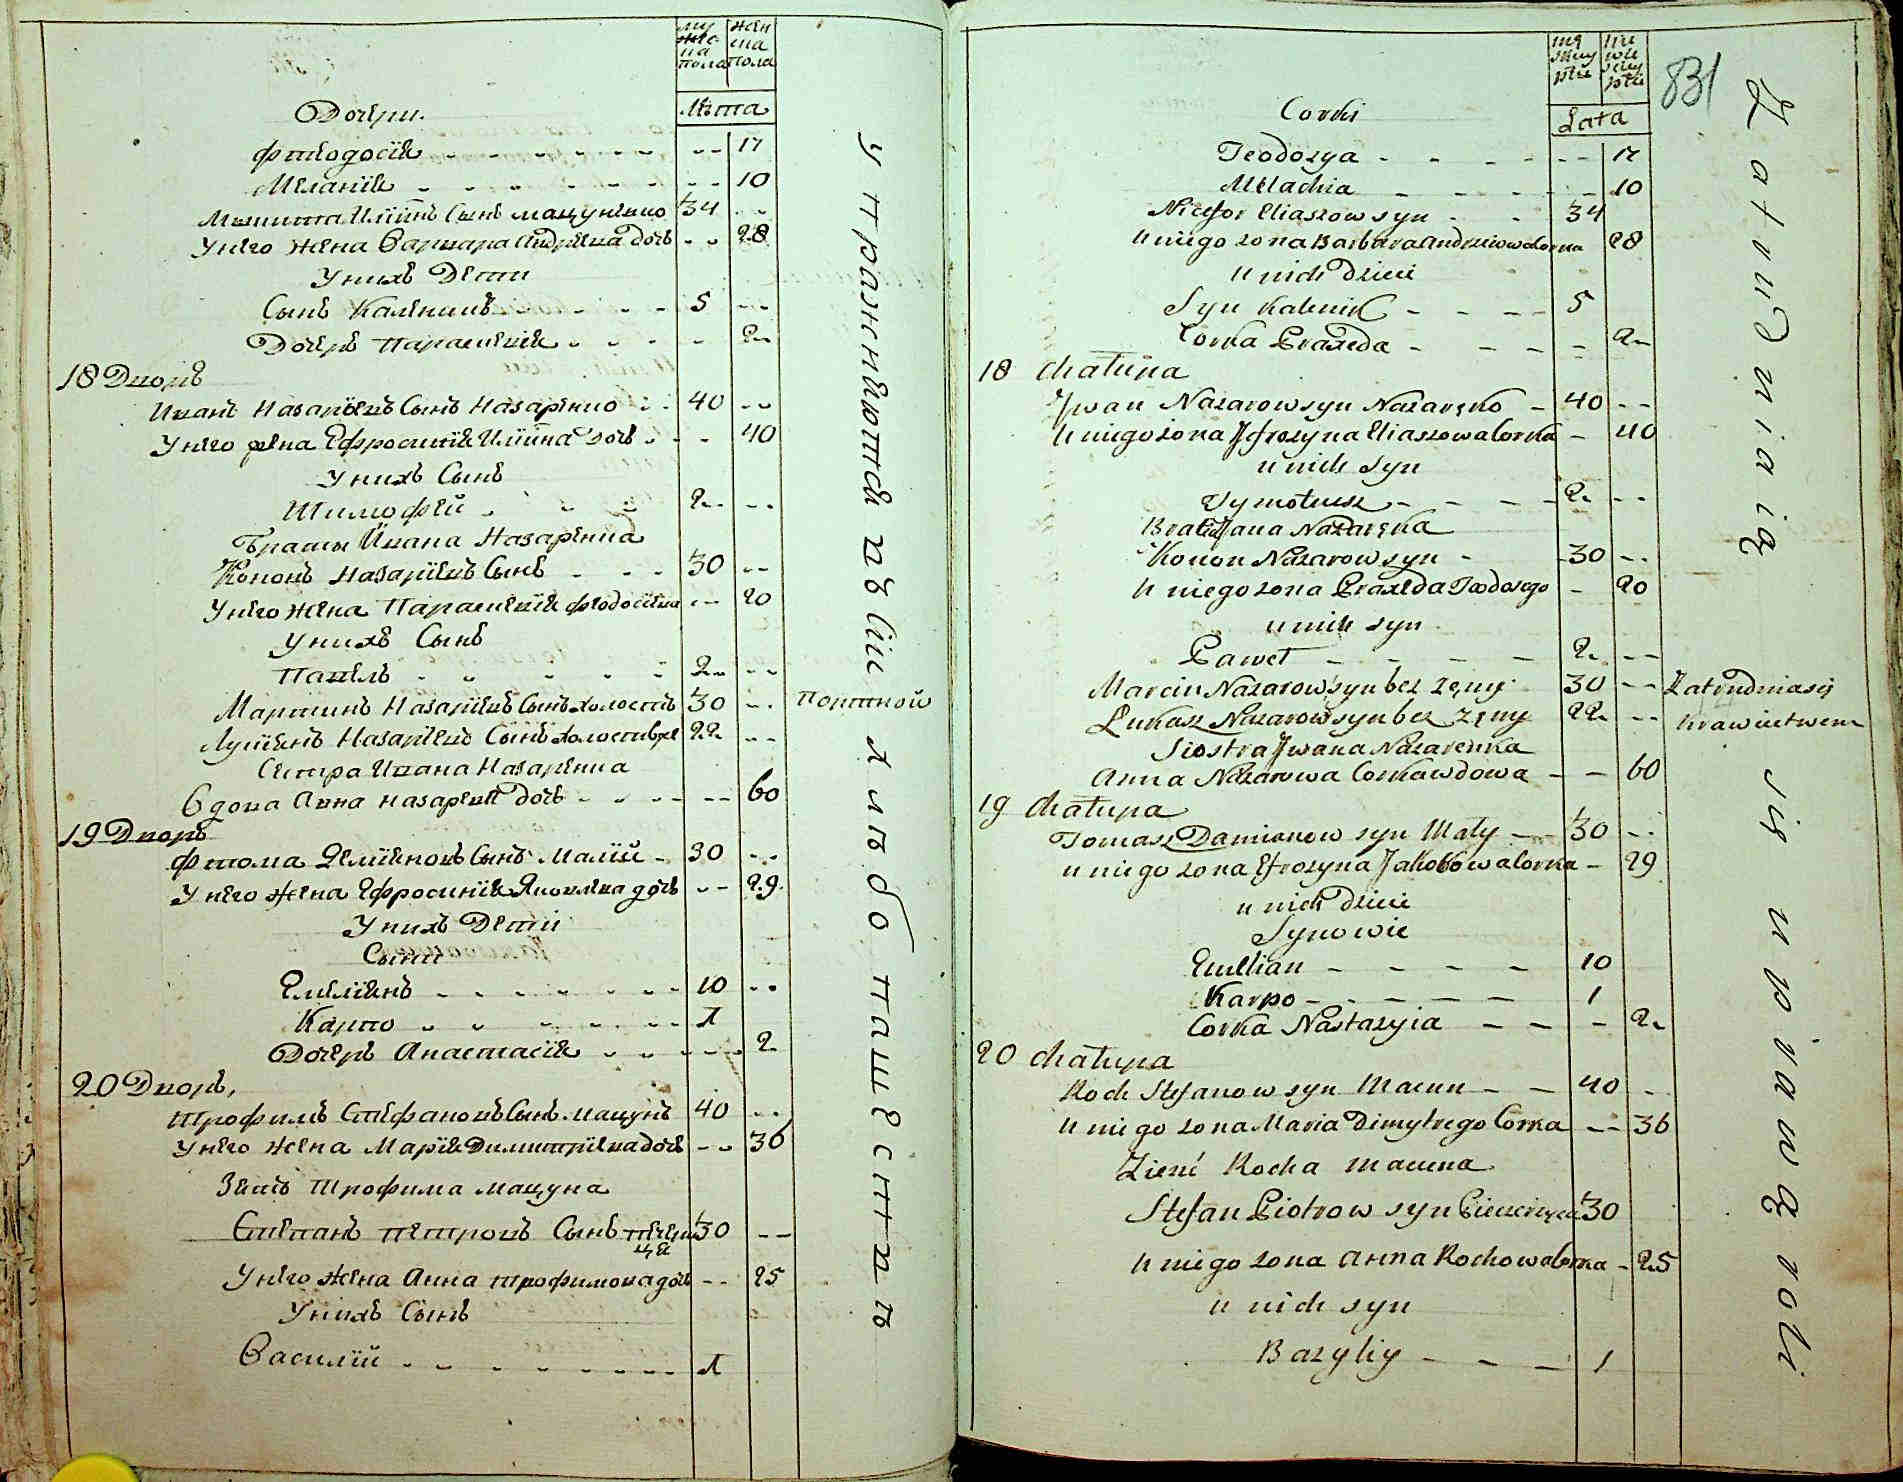 му
жес-
ка
пола
жен
ска
пола
Лѣта
Дочери.
Фтеодосія 17
Меланія 10
Микита Иліинъ Сынъ мацуненко 34
У него жена Варвара Андреева дочь 28
У нихъ Дети
Сынъ Каленикъ 5
Дочерь Парасковія 2
18 Дворъ
Иванъ Назаріевъ Сынъ Назаренко 40
У него жена Ефросинія Иліина дочь 40
У нихъ Сынъ
Тимофей 2
Браты Ивана Назаренка
Кононъ Назаріевъ Сынъ 30
У него жена Парасковія Феодосіева 20
У нихъ Сынъ
Павелъ 2
Мартинъ Назаріевъ Сынъ холостъ 30 Портной
Лукіянъ Назаріевъ Сынъ холостъ 22
Сестра Ивана Назаренка
Вдова Анна Назаріева дочь 60
19 Дворъ
Фтома Деміяновъ Сынъ Малій 30
У него жена Ефросинія Яковлева дочь 29
У нихъ Дети
Сыни
Емеліянъ 10
Карпо 1
Дочерь Анастасія 2
20 Дворъ
Трофимъ Стефановъ Сынъ мацунъ 40
У него жена Марія Димитріева дочь 36
Зять Трофима мацуна
Степанъ Петровъ Сынъ 30
У него жена Анна Трофимова дочь 25
У нихъ Сынъ
Василій 1
упражняются въ сіи хлѣбопашествѣ
831
Lata
Corki
Teodozya 17
Melachia 10
Nicefor Eliaszow syn 34
u niego zona Barbara Andreiowa Corka 28
u nich dzieci
Syn Kalenik 5
Corka Praxeda 2
18 Chatupa
Jwan Nazarow syn Nazarenko 40
u niego zona Jefrozyna Eliaszowa Corka 40
u nich syn
Tymoteusz 2
Brat Jwana Nazarenka
Konon Nazarow syn 30
u niego zona Praxeda Teodosego 20
u nich syn
Paweł 2
Marcin Nazarow syn bez żeny 30 Zatrudnia się
Łukasz Nazarow syn bez żeny 22 krawiectwem
Siostra Jwana Nazarenka
Anna Nazarowa Corka wdowa 60
19 Chatupa
Tomasz Damianow syn Mały 30
u niego zona Efrozyna Jakobowa Corka 29
u nich dzieci
Synowie
Emelian 10
Karpo 1
Corka Nastazyia 2
20 Chatupa
Roch Stefanow syn Macun 40
u niego zona Maria Dimytrego Corka 36
Zięć Rocha Macuna
Stefan Piotrow syn 30
u niego zona Anna Rochowa Corka 25
u nich syn
Bazyliy 1
Zatrudniaią się uprawą roli